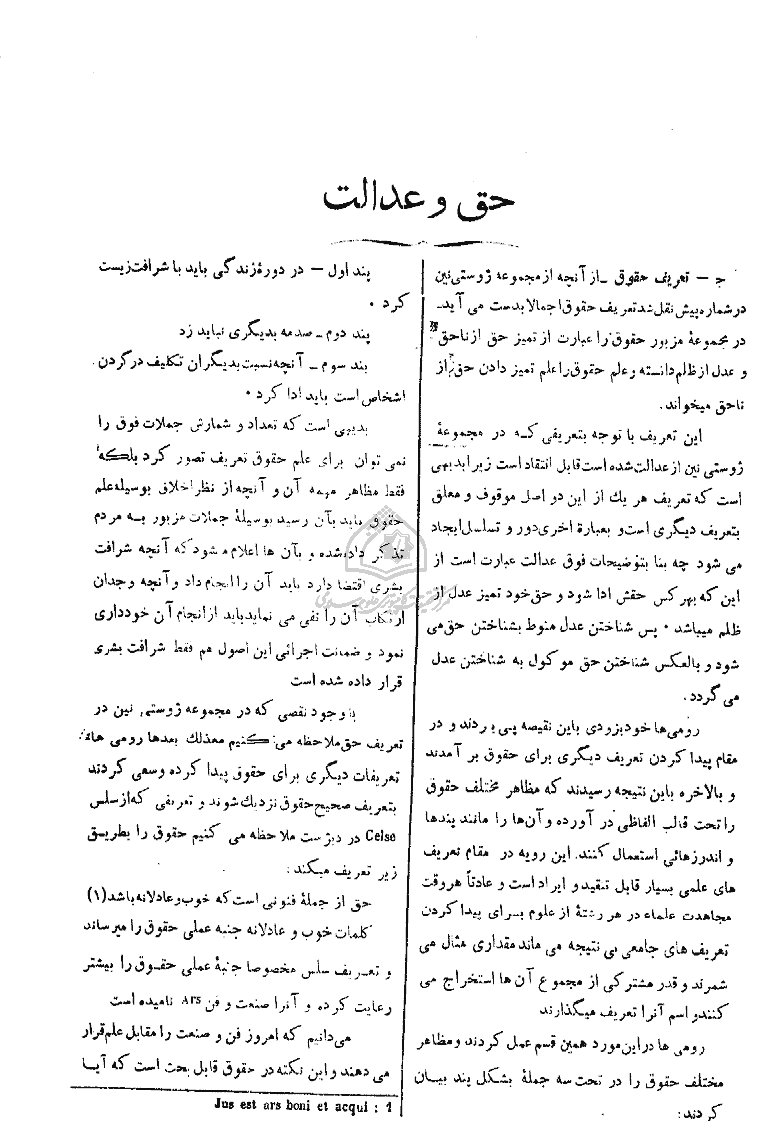 حق و عدالت
ج — تعریف حقوق ـ از آنچه از مجموعه ژوستی نین
در شماره پیش نقل شد تعریف حقوق اجمالا بدست می آید ـ
در مجموعهٔ مزبور حقوق را عبارت از تمیز حق از ناحق
و عدل از ظلم دانسته و علم حقوق را علم تمیز دادن حق از
ناحق میخواند.
این تعریف با توجه بتعریفی کـه در مجموعهٔ
ژوستی نین از عدالت شده است قابل انتقاد است زیرا بدیهی
است که تعریف هر یك از این دو اصل موقوف و معلق
بتعریف دیگری است و بعبارة اخری دور و تسلسل ایجاد
می شود چه بنا بتوضیحات فوق عدالت عبارت است از
این که بهر کس حقش ادا شود و حق خود تمیز عدل از
ظلم میباشد ۰ پس شناختن عدل منوط بشناختن حق می
شود و بالعکس شناختن حق موکول به شناختن عدل
می گردد.
رومی ها خود بزودی باین نقیصه پی بردند و در
مقام پیدا کردن تعریف دیگری برای حقوق بر آمدند
و بالاخره باین نتیجه رسیدند که مظاهر مختلف حقوق
را تحت قالب الفاظی در آورده و آن ها را مانند پندها
و اندرزهائی استعمال کنند. این رویه در مقام تعریف
های علمی بسیار قابل تنقید و ایراد است و عادتاً هر وقت
مجاهدت علماء در هر رشتهٔ از علوم بـرای پیدا کردن
تعریف های جامعی بی نتیجه می ماند مقداری مثال می
شمرند و قدر مشترکی از مجموع آن ها استخراج می
کنند و اسم آنرا تعریف میگذارند
رومی ها در این مورد همین قسم عمل کردند و مظاهر
مختلف حقوق را در تحت سه جملهٔ بشکل پند بیـان
کردند:
پند اول — در دورهٔ زندگی باید با شرافت زیست
کرد ۰
پند دوم ـ صدمه بدیگری نباید زد
بند سوم ـ آنچه نسبت بدیگران تکلیف در گردن
اشخاص است باید ادا کرد ۰
بدیهی است که تعداد و شمارش جملات فوق را
نمی توان برای علم حقوق تعریف تصور کرد بلکه
فقط مظاهر مهمه آن و آنچه از نظر اخلاق بوسیله علم
حقوق باید بآن رسید بوسیلهٔ جملات مزبور بـه مردم
تذکر داده شده و بآن ها اعلام میشود که آنچه شرافت
بشری اقتضا دارد باید آن را انجام داد و آنچه وجدان
ارتکاب آن را نفی می نماید باید از انجام آن خودداری
نمود و ضمانت اجرائی این اصول هم فقط شرافت بشری
قرار داده شده است
با وجود نقصی که در مجموعه ژوستی نین در
تعریف حق ملاحظه می کنیم معذلك بعدها رومی ها
تعریفات دیگری برای حقوق پیدا کرده و سعی کردند
بتعریف صحیح حقوق نزدیك شوند و تعریفی که از سلس
Celse در دیژست ملاحظه می کنیم حقوق را بطریـق
زیر تعریف میکند:
حق از جملهٔ فنونی است که خوب و عادلانه باشد (۱)
کلمات خوب و عادلانه جنبه عملی حقوق را میرساند
و تعـریف سلس مخصوصا جنبهٔ عملی حقـوق را بیشتر
رعایت کرده و آنرا صنعت و فن Ars نامیده است
می دانیم که امروز فن و صنعت را مقابل علم قرار
می دهند و این نکته در حقوق قابل بحث است که آیـا
Jus est ars boni et acqui : 1